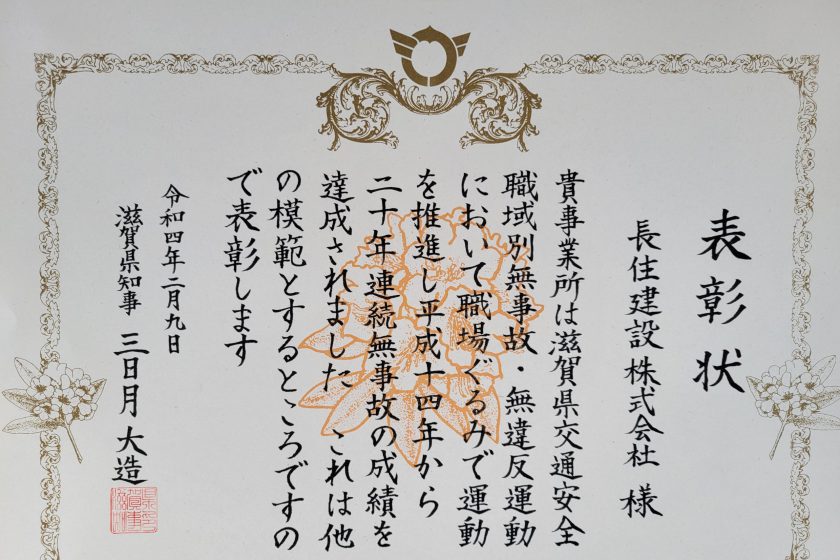 表彰状
長住建設株式会社 様
貴事業所は滋賀県交通安全
職域別無事故・無違反運動
において職場ぐるみで運動
を推進し平成十四年から
二十年連続無事故の成績を
達成されました これは他
の模範とするところですの
で表彰します
令和四年二月九日
滋賀県知事 三日月大造